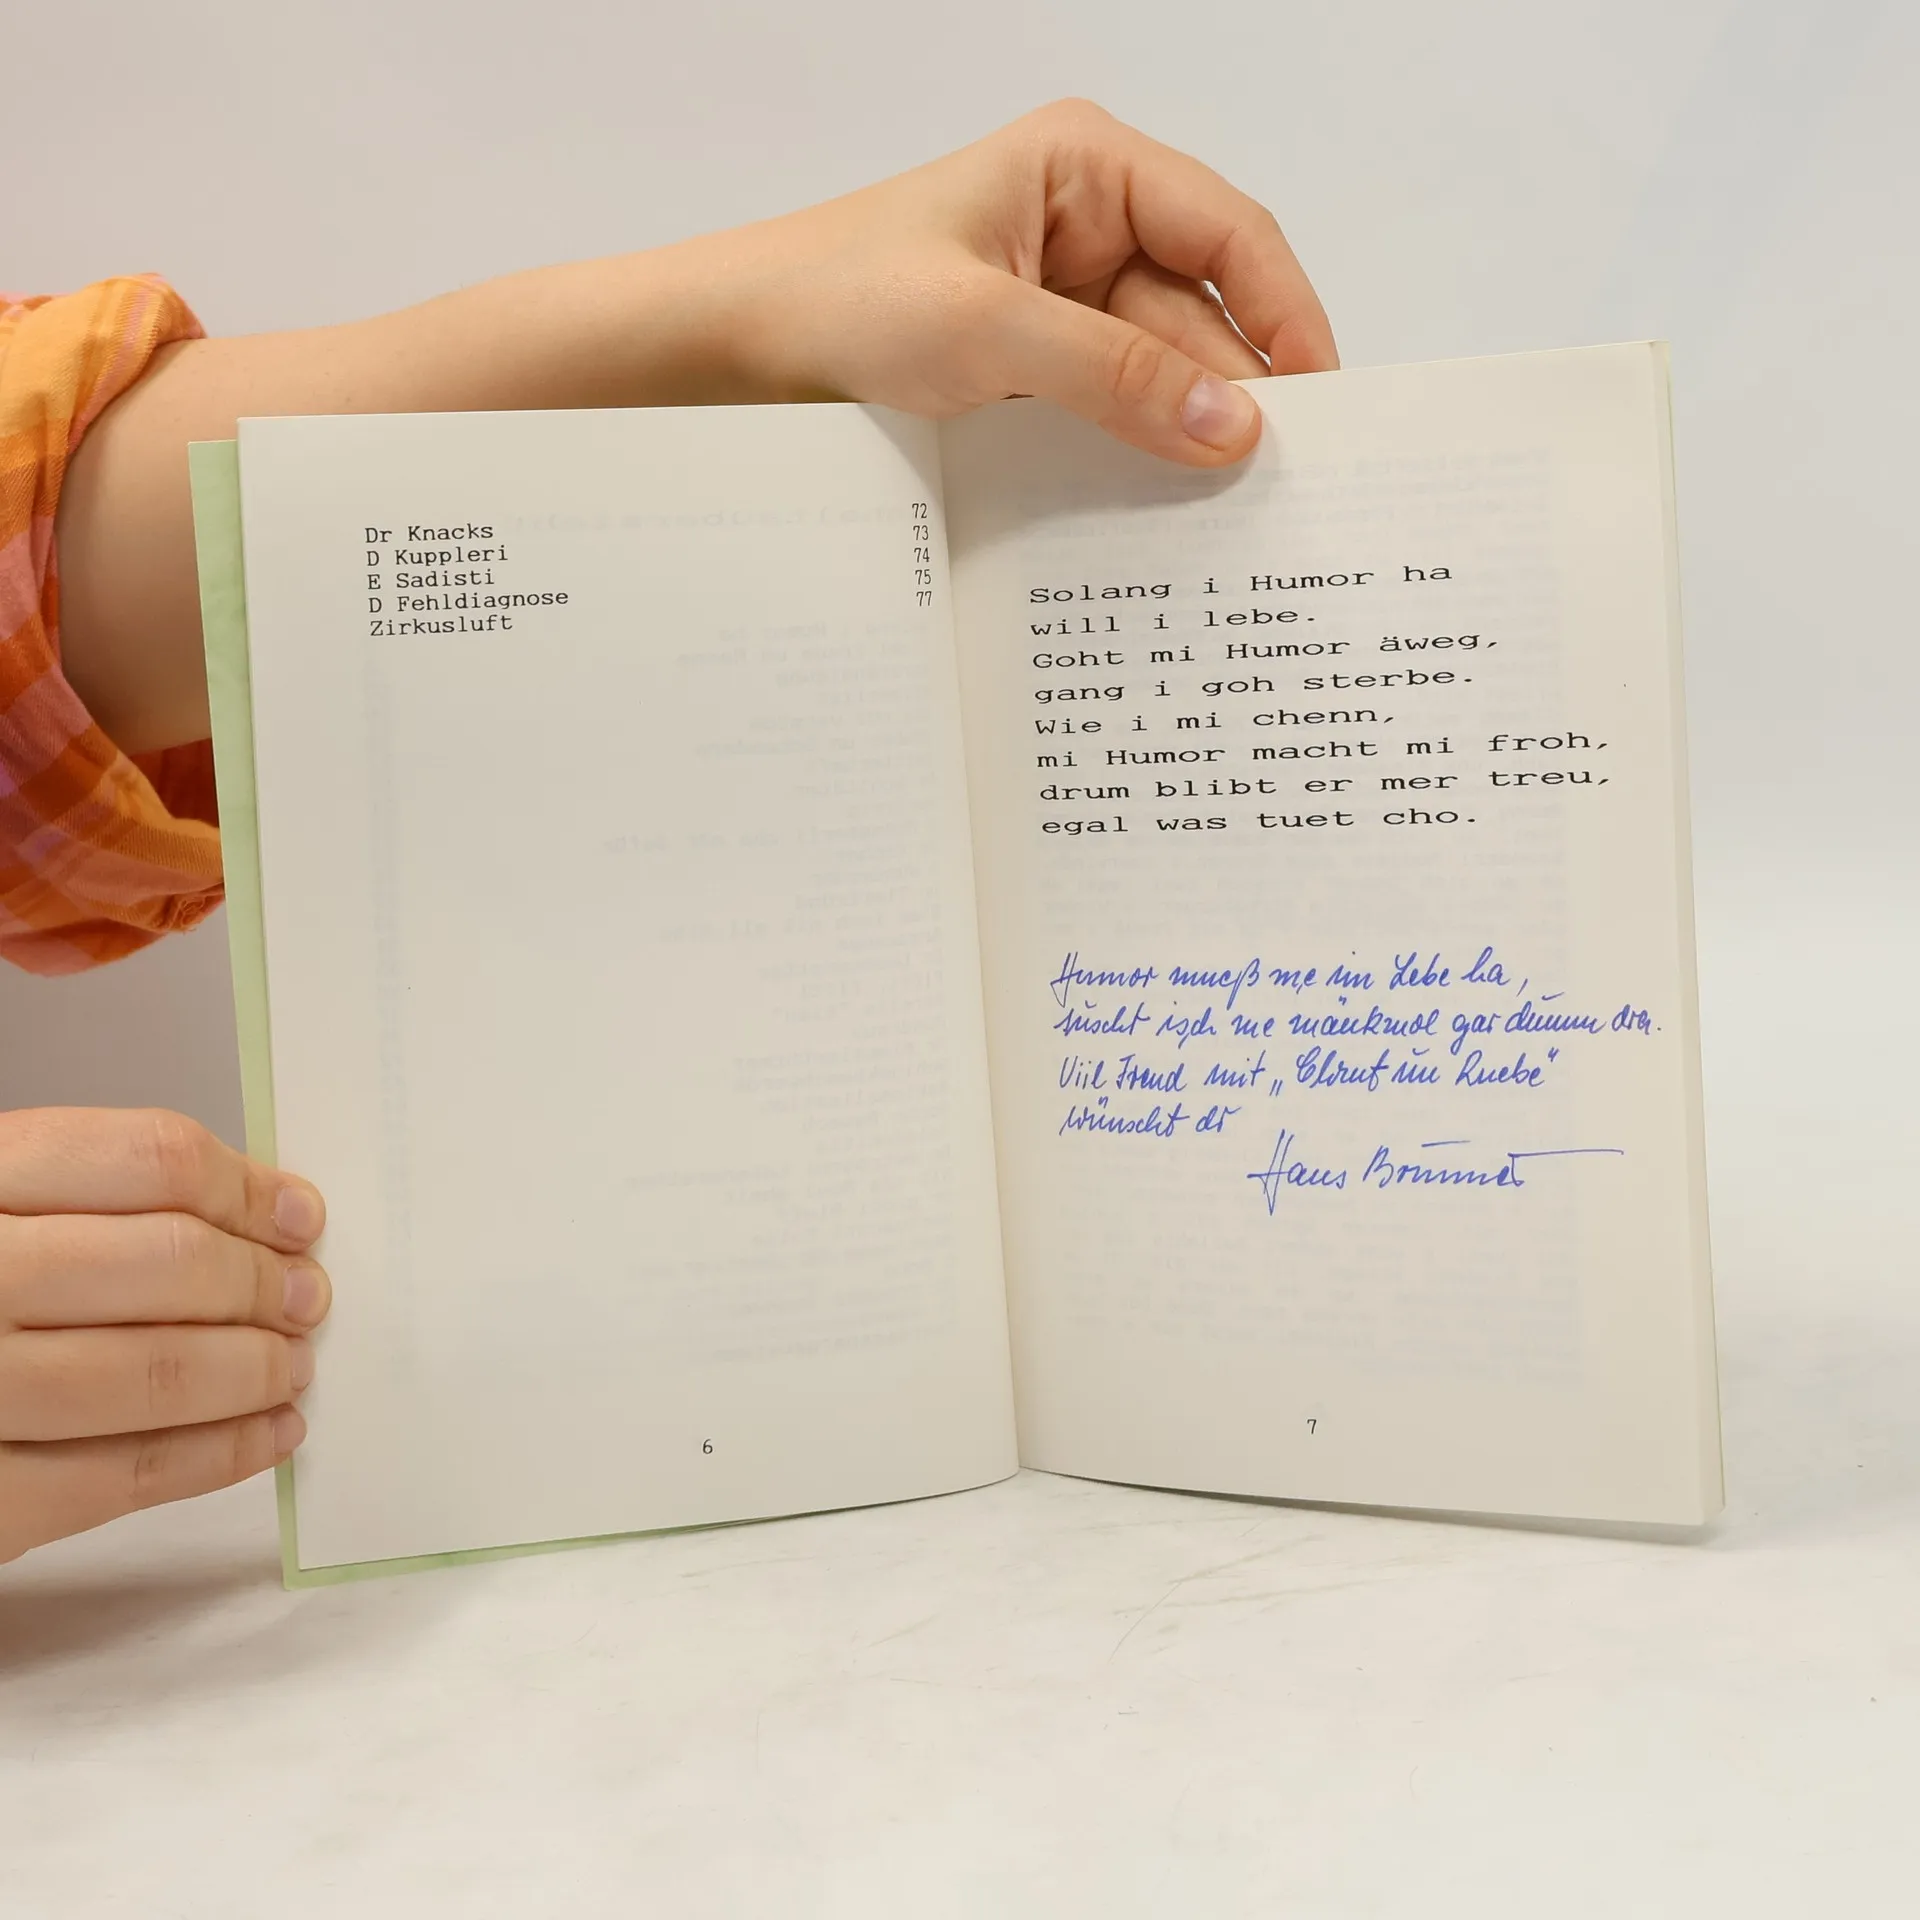 Dr Knacks 72
D Kuppleri 73
E Sadisti 74
D Fehldiagnose 75
Zirkusluft 77
6
Solang i Humor ha
will i lebe.
Goht mi Humor äweg,
gang i goh sterbe.
Wie i mi chenn,
mi Humor macht mi froh,
drum blibt er mer treu,
egal was tuet cho.
Humor mueß me im Lebe ha,
süscht isch me mänkmol gar dumm dra.
Viil Freud mit „Chrut un Ruebe"
wünscht dr
Hans Brunner
7